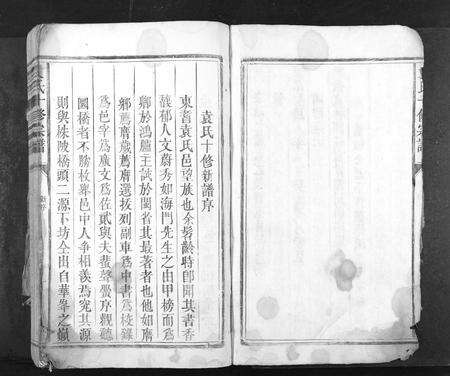 袁氏十修新譜序
東耆袁氏邑望族也余髫齡時卽聞其書香
馥郁人文蔚秀如海門先生之由甲榜而爲
鄉於鴻臚主試於閩省其最著者也他如膺
鄉薦膺歲薦膺選拔列副車爲中書爲校錄
爲邑宰爲廣文爲佐貳與夫蜚聲黌序觀聽
圜橋者不勝枚舉邑中人爭相羨焉究其源
則與株陂橋頭二源下坊仝出自華峯之嶽
袁氏十修宗譜